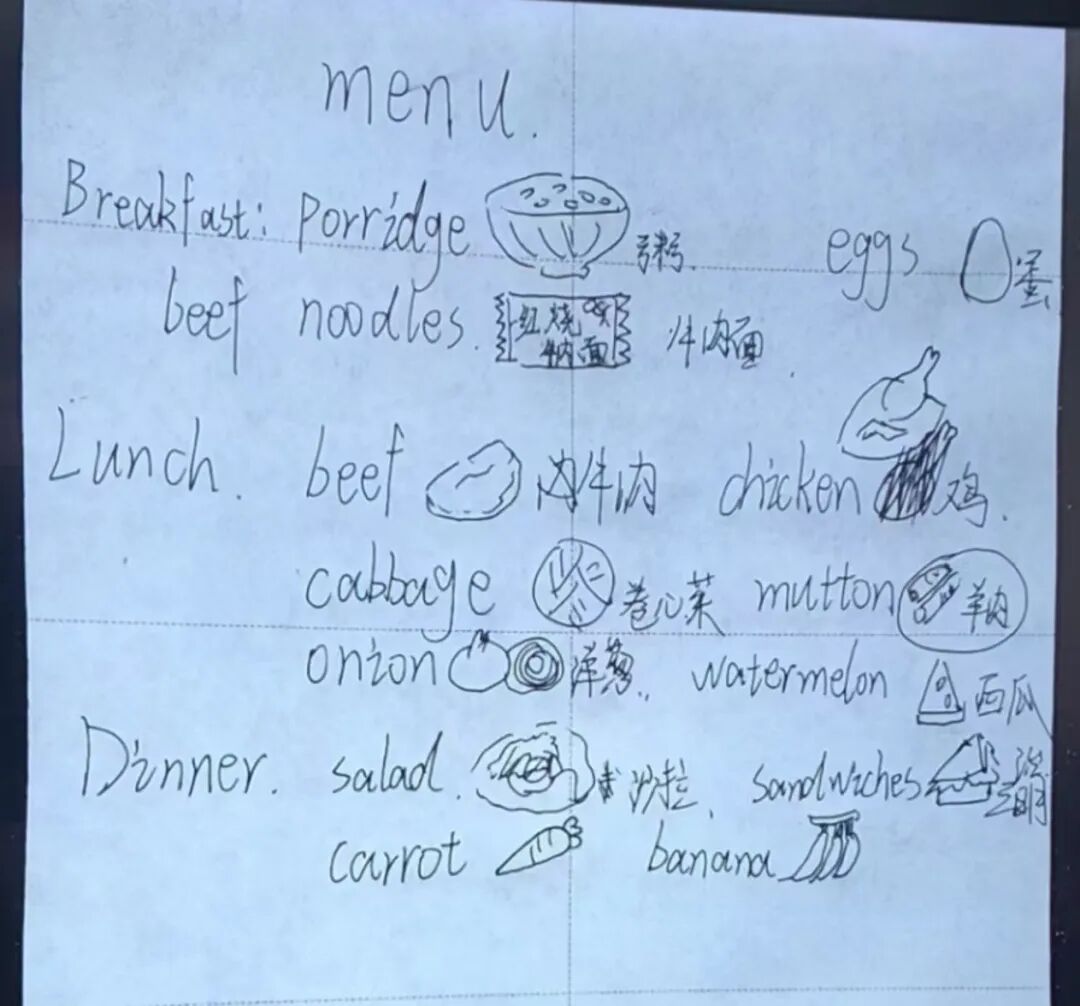 menu.
Breakfast: porridge 粥. eggs 蛋
beef noodles. 红烧 牛肉面 牛肉面.
Lunch. beef 肉牛肉 chicken 鸡.
cabbage 卷心菜 mutton 羊肉
onion 洋葱. watermelon 西瓜
Dinner. salad. 沙拉. sandwiches 三明治
carrot banana